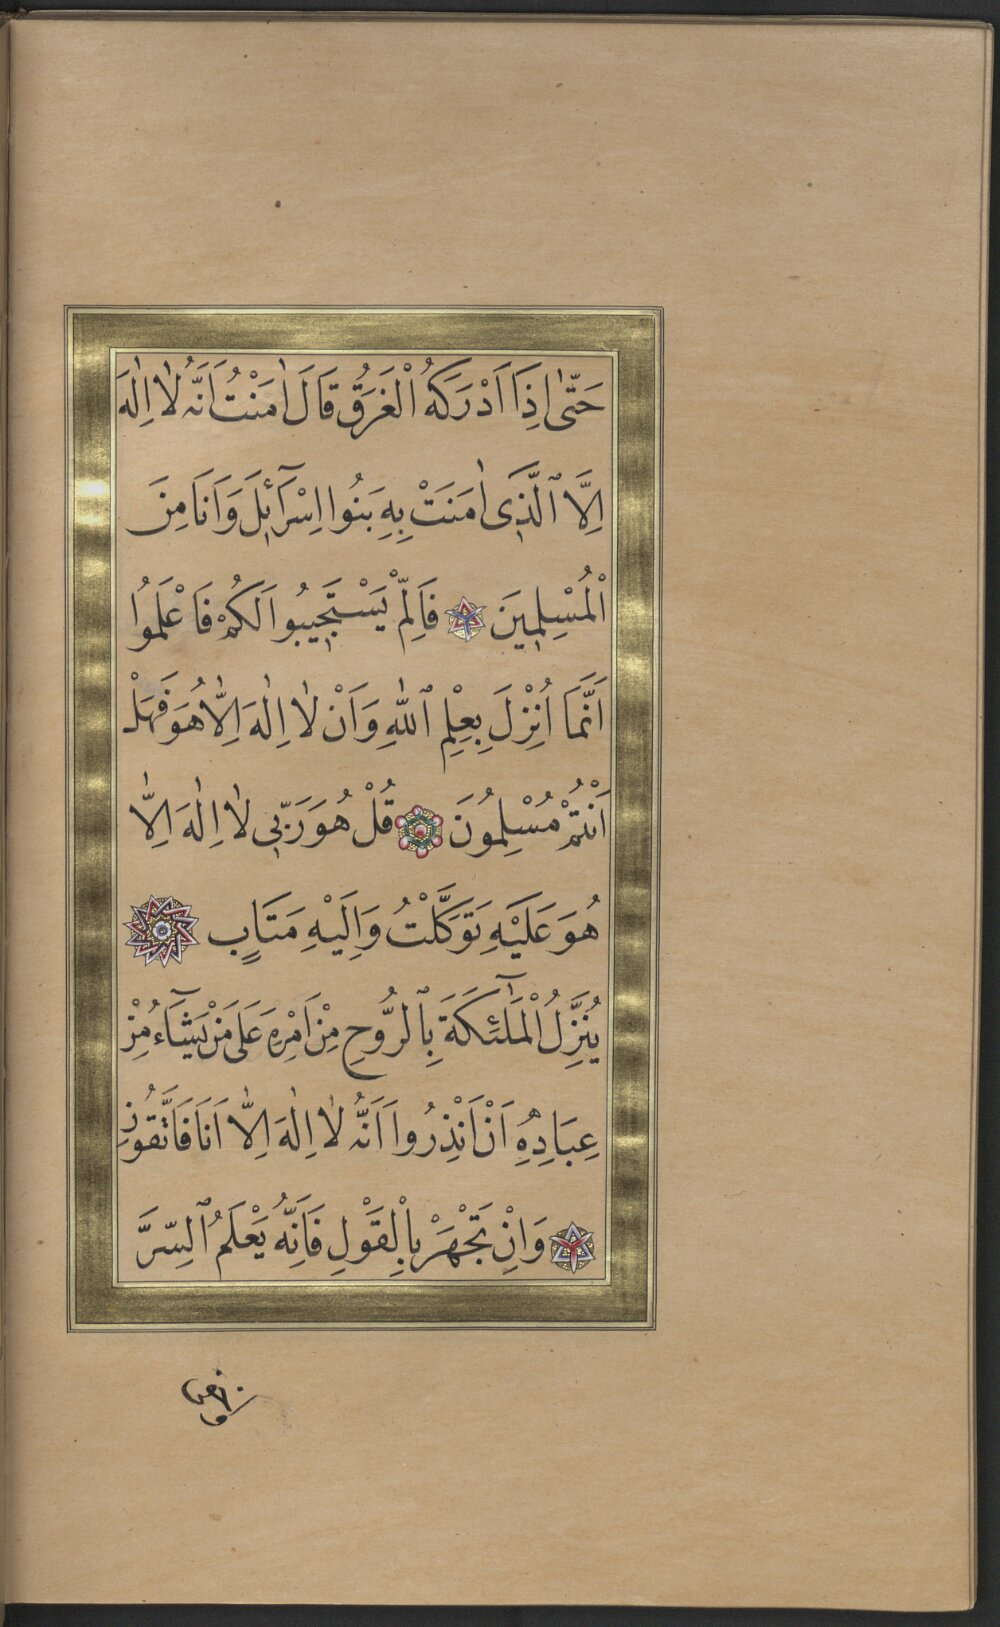 حَتّٰى اِذَا اَدْرَكَهُ الْغَرَقُ قَالَ اٰمَنْتُ اَنَّهُ لٰا اِلٰهَ
اِلَّا ٱلَّذٖى اٰمَنَتْ بِهِ بَنُوا اِسْرَآئٖلَ وَاَنَا مِنَ
الْمُسْلِمٖينَ فَاِلَّمْ يَسْتَجٖيبُوا لَكُمْ فَاعْلَمُوا
اَنَّمَا اُنْزِلَ بِعِلْمِ ٱللّٰهِ وَاَنْ لٰا اِلٰهَ اِلّٰا هُوَ فَهَلْ
اَنْتُمْ مُسْلِمُونَ قُلْ هُوَ رَبّٖى لٰا اِلٰهَ اِلّٰا
هُوَ عَلَيْهِ تَوَكَّلْتُ وَاِلَيْهِ مَتَابِ
يُنَزِّلُ الْمَلٰٓئِكَةَ بِٱلرُّوحِ مِنْ اَمْرِهٖ عَلٰى مَنْ يَشَآءُ مِنْ
عِبَادِهٖٓ اَنْ اَنْذِرُوا اَنَّهُ لٰا اِلٰهَ اِلّٰا اَنَا فَاتَّقُونِ
وَاِنْ تَجْهَرْ بِالْقَوْلِ فَاِنَّهُ يَعْلَمُ ٱلسِّرَّ